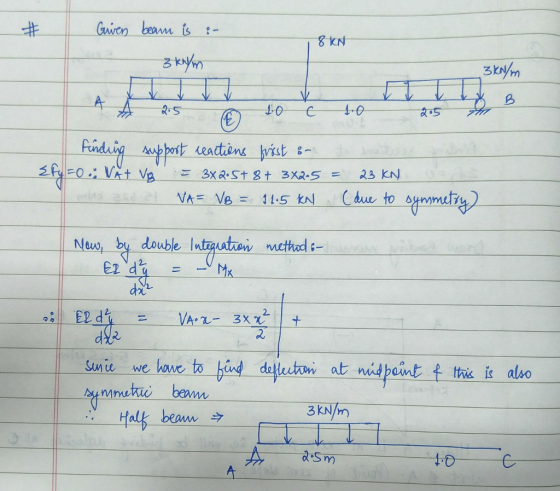 # Given beam is :-
8 KN
3 KN/m 3 KN/m
A 2.5 E 1.0 C 1.0 2.5 B
Finding support reactions first :-
ΣFy=0 ∴ VA + VB = 3×2.5 + 8 + 3×2.5 = 23 KN
VA = VB = 11.5 KN (due to symmetry)
Now, by double Integration method :-
EI d²y/dx² = - Mx
∴ EI d²y/dx² = VA·x - 3×x²/2 | +
Since we have to find deflection at midpoint & this is also
symmetric beam
∴ Half beam ⇒ 3KN/m
A 2.5m 1.0 C